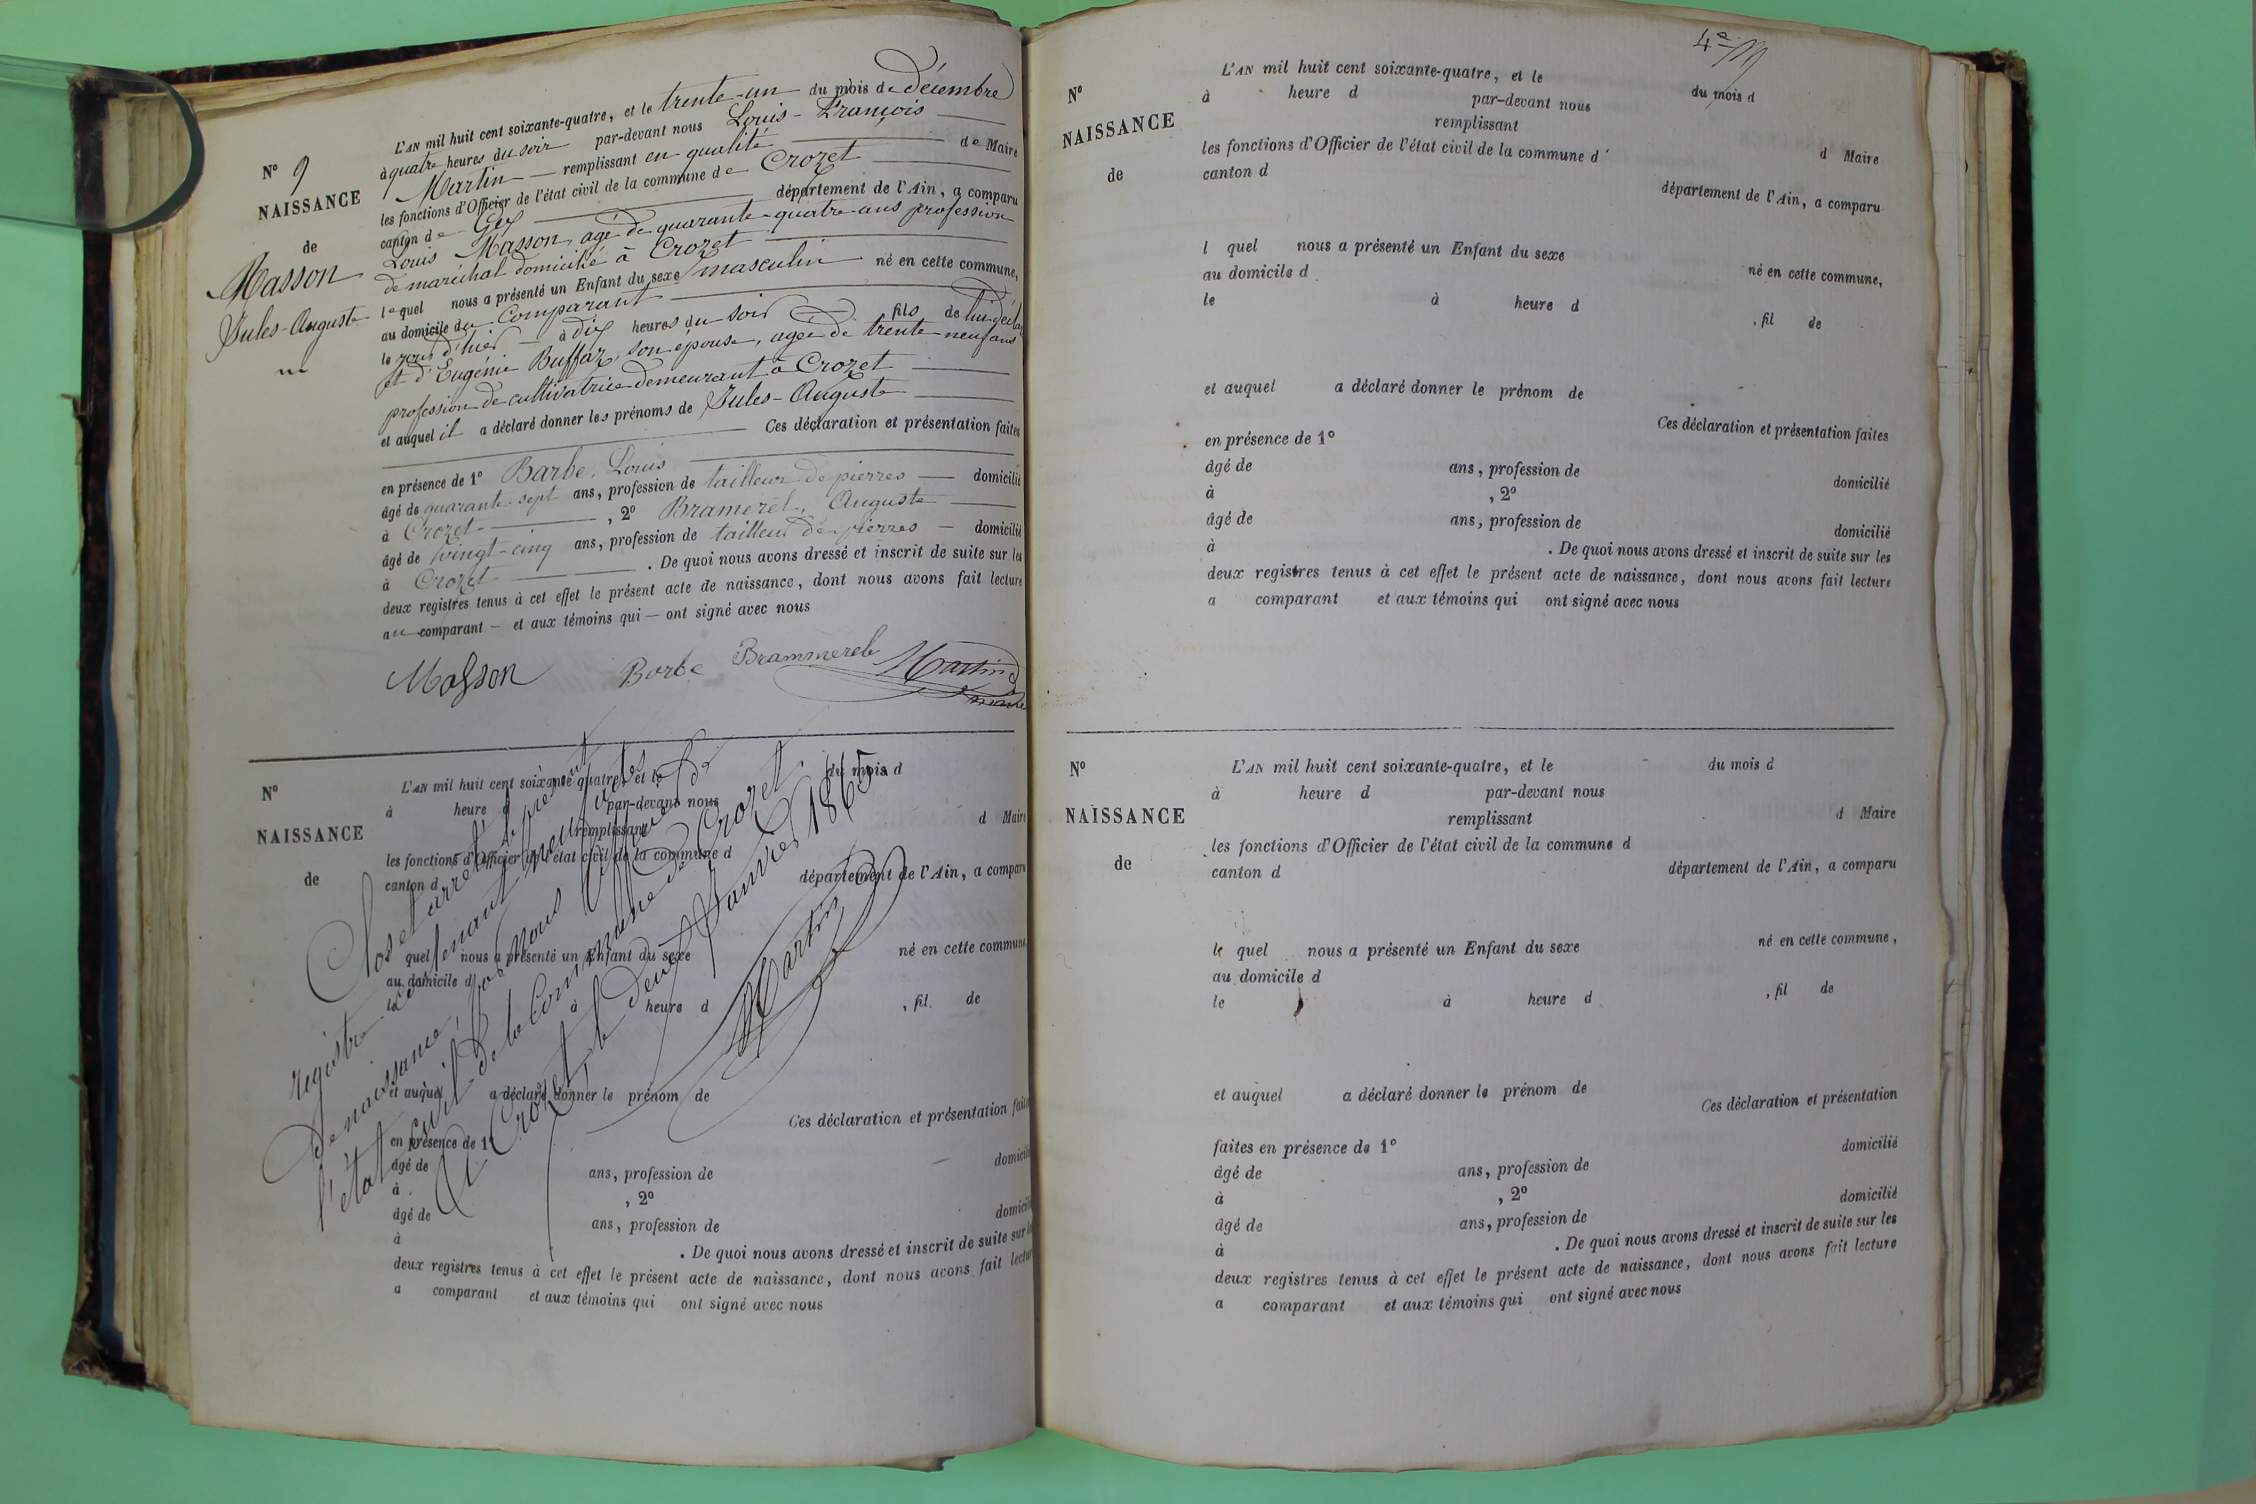 N° 9
NAISSANCE
de
Masson
Jules-Auguste
L'AN mil huit cent soixante-quatre, et le trente-un du mois de décembre
à quatre heures du soir par-devant nous Louis-François
Martin remplissant en qualité de Maire
les fonctions d'Officier de l'état civil de la commune de Crozet
canton de Gex département de l'Ain, a comparu
Louis Masson, agé de quarante-quatre ans profession
de maréchal domicilié à Crozet
lequel nous a présenté un Enfant du sexe masculin né en cette commune,
au domicile du Comparant
le jour d'hier à dix heures du soir fils de lui déclar
et d'Eugénie Buffaz, son épouse, agée de trente-neuf ans
profession de cultivatrice demeurant à Crozet
et auquel il a déclaré donner les prénoms de Jules-Auguste
Ces déclaration et présentation faites
en présence de 1° Barbe, Louis
âgé de quarante-sept ans, profession de tailleur de pierres domicilié
à Crozet , 2° Bramerel, Auguste
âgé de vingt-cinq ans, profession de tailleur de pierres domicilié
à Crozet . De quoi nous avons dressé et inscrit de suite sur les
deux registres tenus à cet effet le présent acte de naissance, dont nous avons fait lecture
au comparant et aux témoins qui ont signé avec nous
Masson Barbe Brammerel Martin
maire
N°
NAISSANCE
de
L'AN mil huit cent soixante-quatre, et le du mois d
à heure d par-devant nous
remplissant d Maire
les fonctions d'Officier de l'état civil de la commune d
canton d département de l'Ain, a comparu
quel nous a présenté un Enfant du sexe né en cette commune
au domicile d
le à heure d , fil de
et auquel a déclaré donner le prénom de
Ces déclaration et présentation faites
en présence de 1°
âgé de ans, profession de domicilié
à , 2°
âgé de ans, profession de domicilié
à . De quoi nous avons dressé et inscrit de suite sur les
deux registres tenus à cet effet le présent acte de naissance, dont nous avons fait lecture
a comparant et aux témoins qui ont signé avec nous
Clos et arrêté le présent
registre contenant neuf actes
de naissance, par nous Officier de
l'état civil de la Commune de Crozet.
A Crozet le deux Janvier 1865.
Martin
4e
N°
NAISSANCE
de
L'AN mil huit cent soixante-quatre, et le du mois d
à heure d par-devant nous
remplissant d Maire
les fonctions d'Officier de l'état civil de la commune d
canton d département de l'Ain, a comparu
l quel nous a présenté un Enfant du sexe né en cette commune,
au domicile d
le à heure d , fil de
et auquel a déclaré donner le prénom de
Ces déclaration et présentation faites
en présence de 1°
âgé de ans, profession de domicilié
à , 2°
âgé de ans, profession de domicilié
à . De quoi nous avons dressé et inscrit de suite sur les
deux registres tenus à cet effet le présent acte de naissance, dont nous avons fait lecture
a comparant et aux témoins qui ont signé avec nous
N°
NAISSANCE
de
L'AN mil huit cent soixante-quatre, et le du mois d
à heure d par-devant nous
remplissant d Maire
les fonctions d'Officier de l'état civil de la commune d
canton d département de l'Ain, a comparu
le quel nous a présenté un Enfant du sexe né en cette commune,
au domicile d
le à heure d , fil de
et auquel a déclaré donner le prénom de
Ces déclaration et présentation
faites en présence de 1° domicilié
âgé de ans, profession de
à , 2° domicilié
âgé de ans, profession de
à . De quoi nous avons dressé et inscrit de suite sur les
deux registres tenus à cet effet le présent acte de naissance, dont nous avons fait lecture
a comparant et aux témoins qui ont signé avec nous